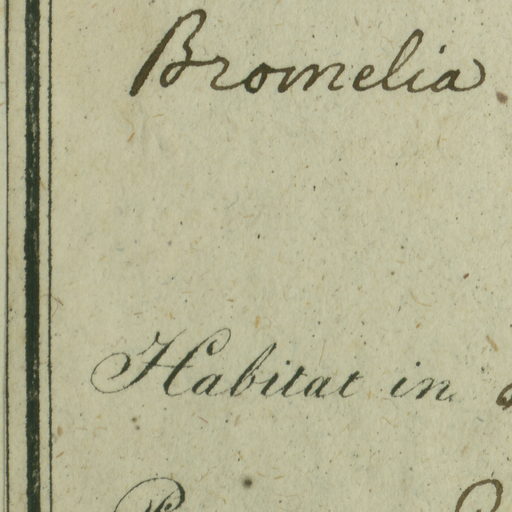 Bromelia
Habitat in